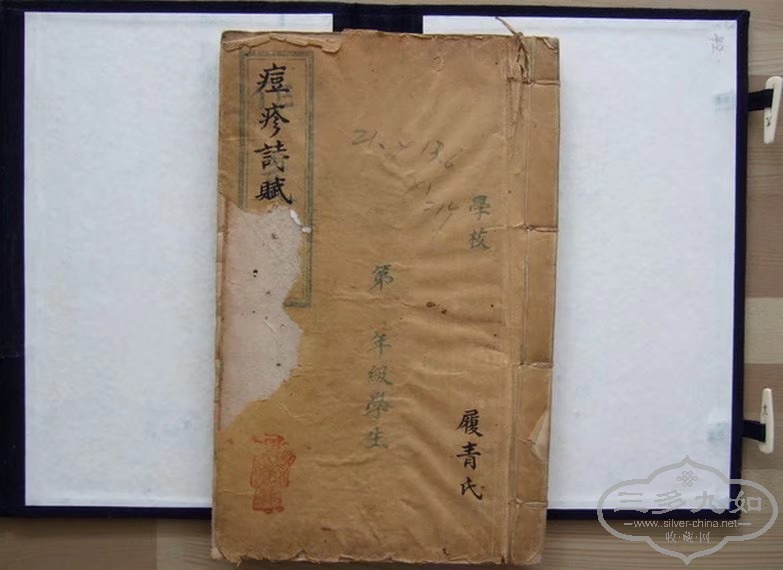 痘疹詩賦
學校
第 年級學生
履青氏
三多九如
www.silver-china.net
收·藏·网